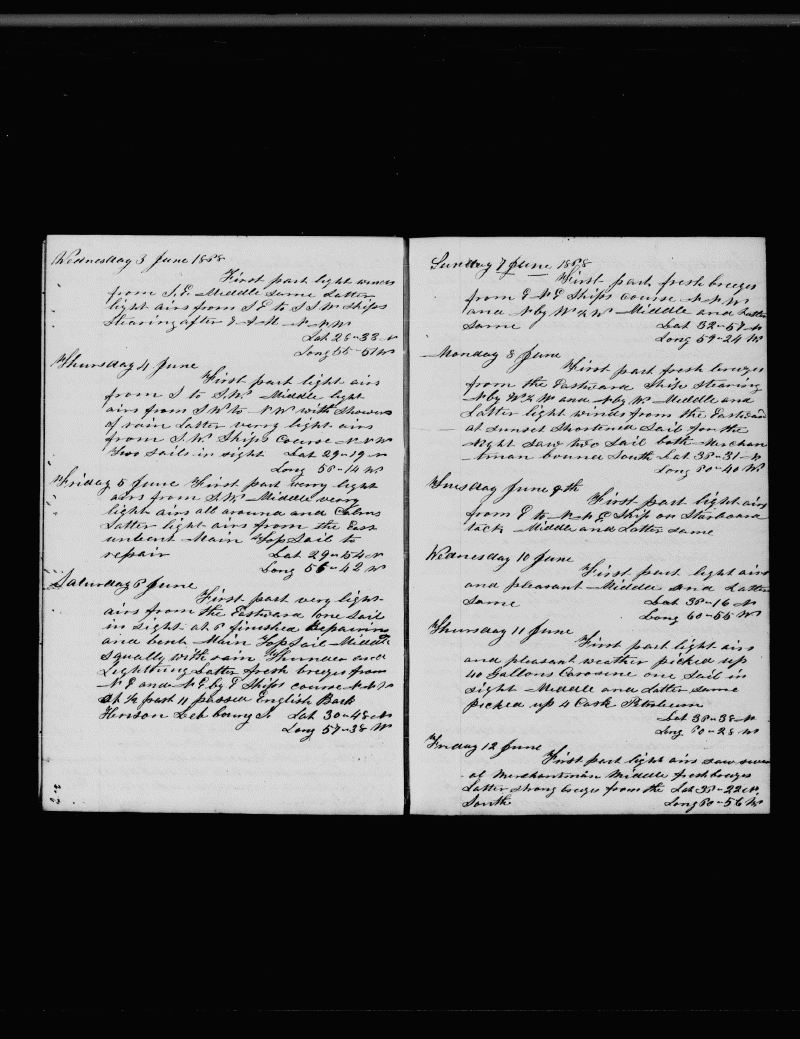 Wednesday 3 June 1868
First part light winds
from S.E. Middle same Latter
light airs from S E to S S W Ships
Stearing after N N W
Lat 28-33 N
Long 55-51 W
Thursday 4 June
First part light airs
from S to S.W. Middle light
airs from S W to N W with Showers
of rain Latter verry light airs
from S.W. Ships Course N N W
Two sail in sight Lat 29-19 N
Long 56-14 W
Friday 5 June First part verry light
airs from S.W. Middle verry
light airs all around and Calms
Latter light airs from the East
unbent Main Top Sail to
repair Lat 29-54 N
Long 56-42 W
Saturday 6 June
First part very light
airs from the Eastward one Sail
in sight at 6 finished Repairing
and bent Main Top Sail Middle
Squally with rain Thunder and
Lightning Latter fresh breezes from
N E and N E by E Ships course N N W
at ½ past 11 passed English Bark
Lat 30-48 N
Long 57-38 W
Sunday 7 June 1868
First part fresh breezes
from E N E Ships course N N W
and N by W ½ W Middle and Latter
Same Lat 32-57 N
Long 59-24 W
Monday 8 June
First part fresh breezes
from the Eastward Ship Stearing
N by W ½ W and N by W Middle and
Latter light winds from the Eastward
at sunset Shortened Sail for the
Night saw two Sail both Merchan
tman bound South Lat 35-31 N
Long 60-40 W
Tuesday June 9th
First part light airs
from E to N N E Ship on Starboard
tack Middle and Latter same
Wednesday 10 June
First part light airs
and pleasant Middle and Latter
Same Lat 36-16 N
Long 60-55 W
Thursday 11 June
First part light airs
and pleasant weather picked up
40 Gallons Carosine one sail in
sight Middle and Latter same
picked up 4 Cask Petroleum
Lat 36-38 N
Long 60-28 W
Friday 12 June
First part light airs saw sever
al Merchantman Middle fresh breezes
Latter strong breezes from the Lat 38-22 N
South Long 60-56 W